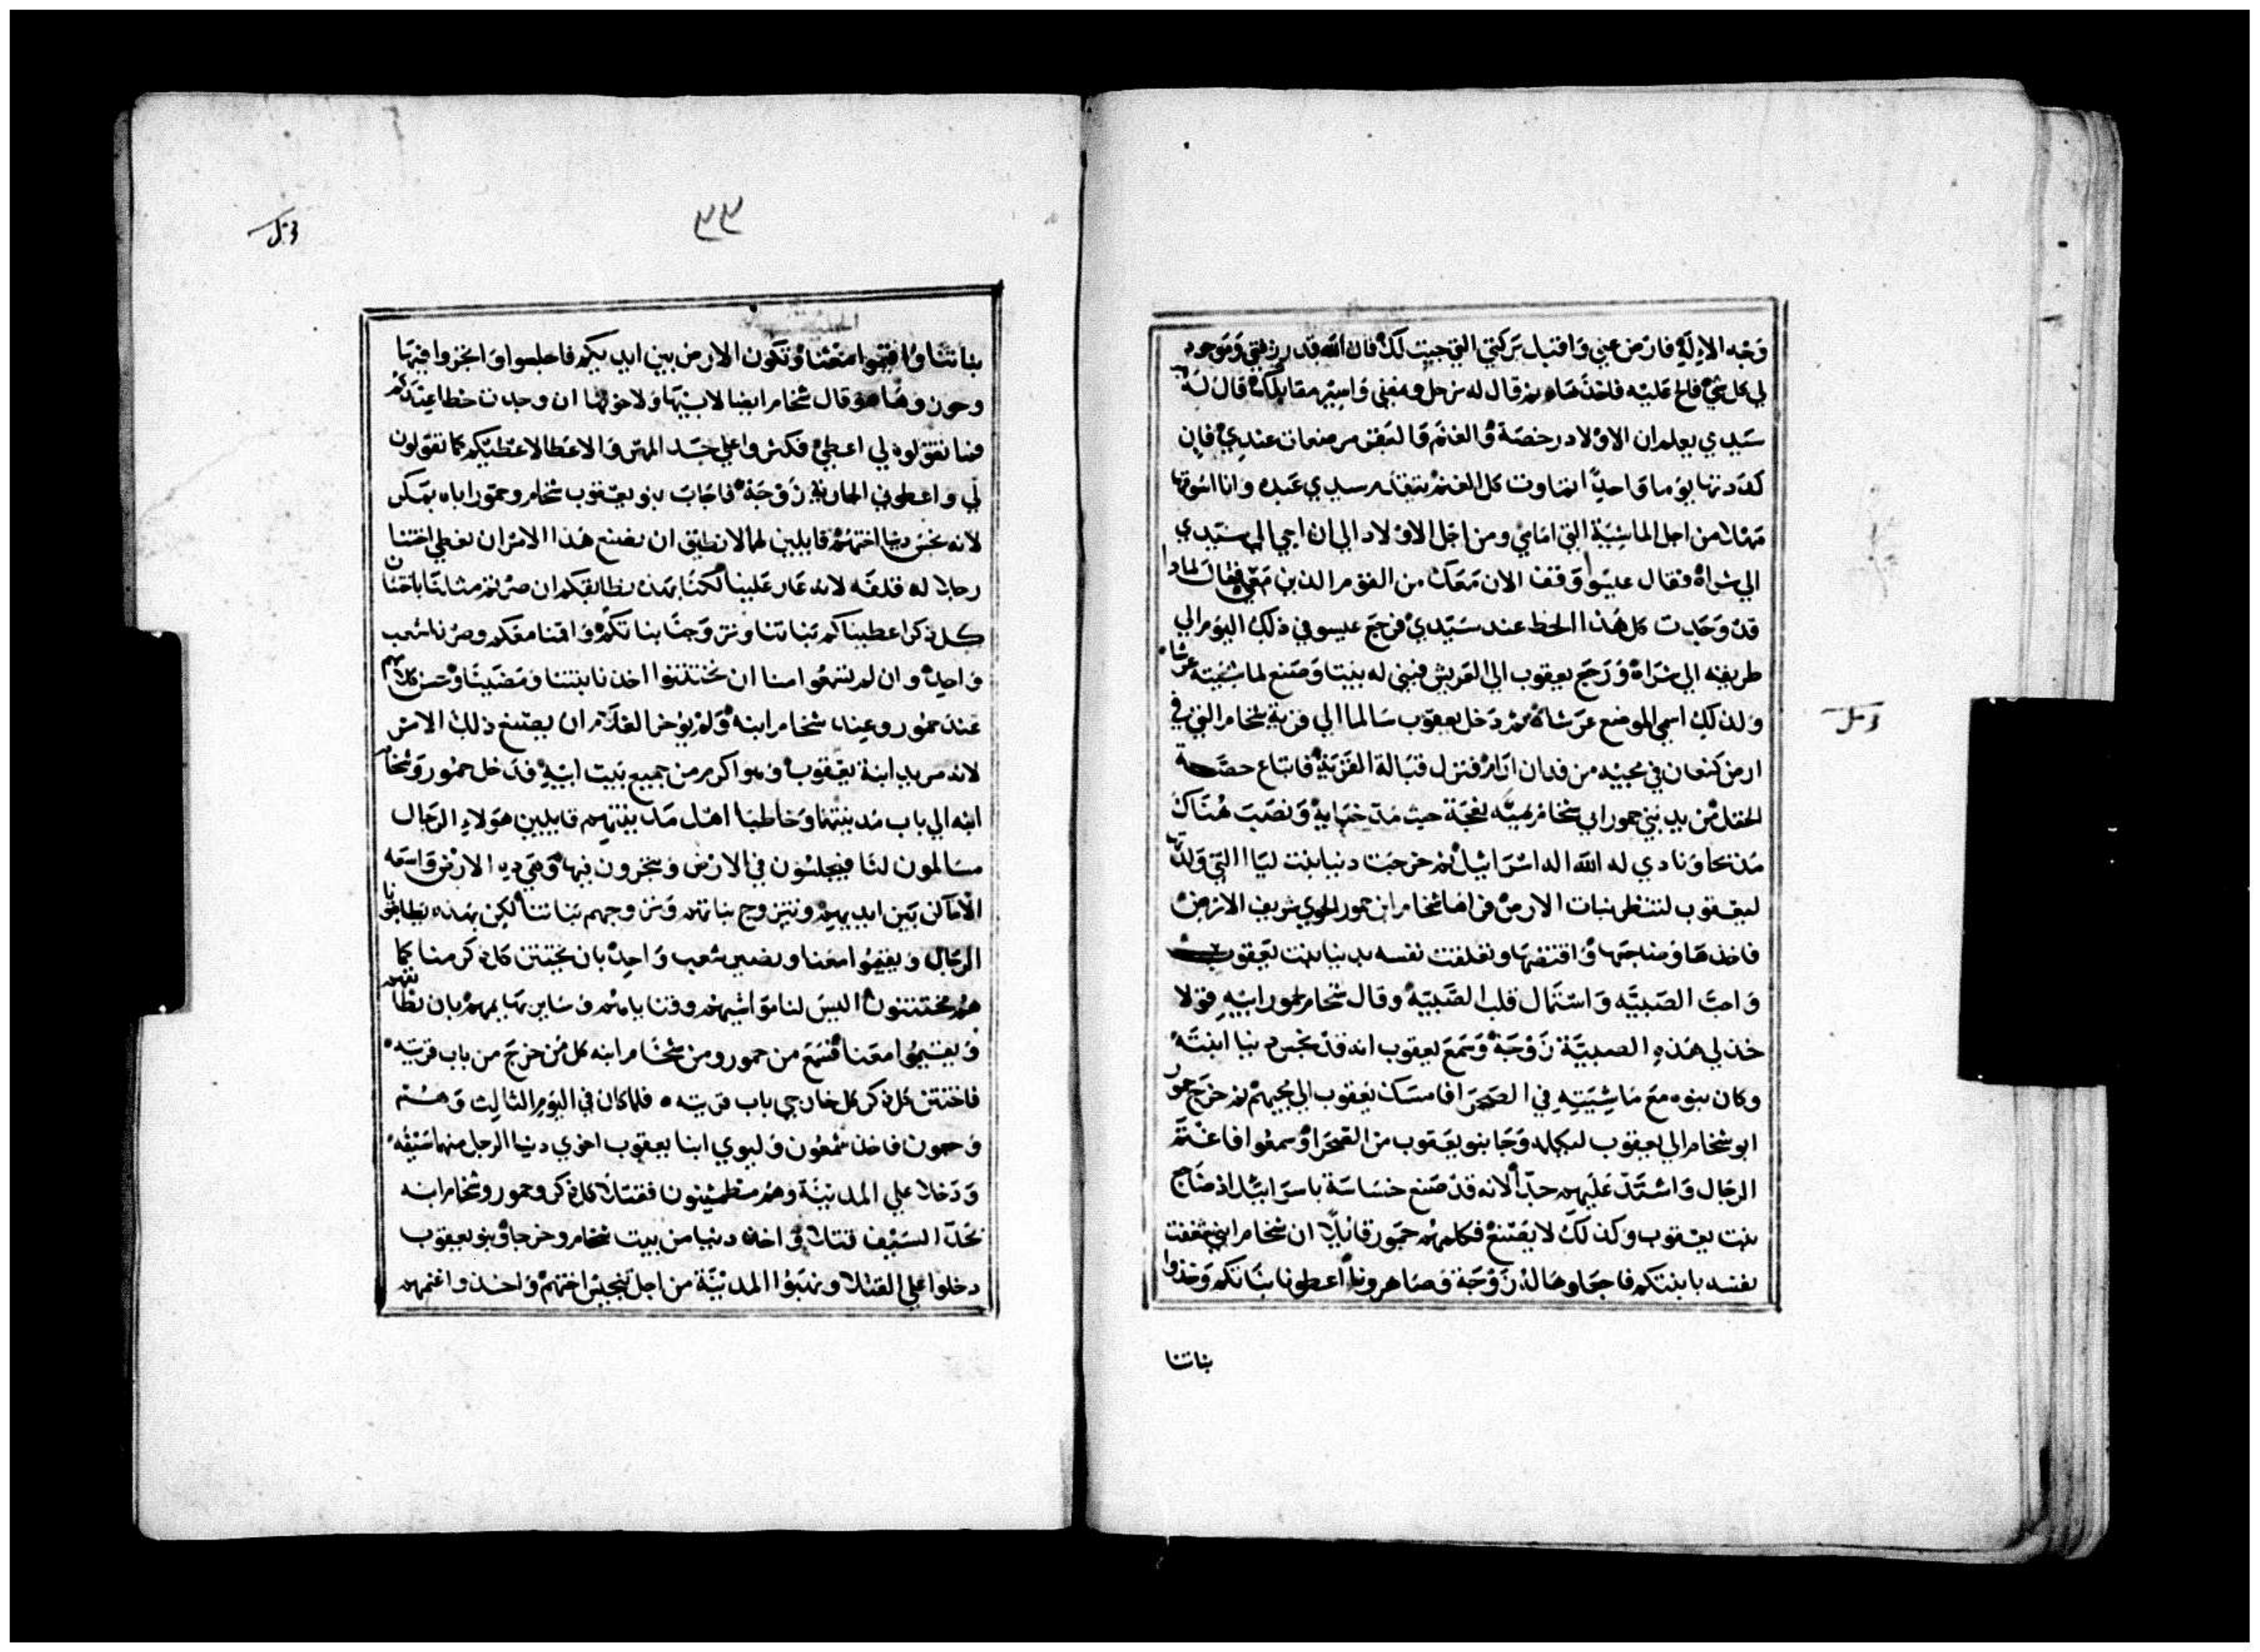 وَجْه الاِلَهِ فارْض عني وَاقبَل بَرَكتي التي جيبت لكَ فان الله قد رزقني وَمَوجود
لي كل شي فالح عَليْه فاخذهَا ثم قال له نرحل ونمضي وَاسِيْر مقابلك قال لَهُ
سَيدي يعلم ان الاوْلاد رخصَة وَالغنَم وَالبَقر مرضعات عنديْ فان
كددتها يوما وَاحدًا تماوت كل الغنم يتقدم سيدي عَبده وانا اسُوقها
مَهلا من اجل الماشِيَة التي امَامي ومن اجْل الاوْلاد الي ان اجي الي سَيّدي
الي شراة فقال عيسَوا وَقف الان مَعَك من القوْم الذين مَعي فقال لماذا
قدْ وَجَدت كل هَذا الحظ عند سَيّديْ فرجَعَ عيسو في ذلك اليوْم الي
طريقه الي شرَاة وَرَجَع يعقوب الي العَريش فبني له بَيتا وَصَنع لماشيته عرشا
ولذلك اسمي الموضع عرَشاة ثم دَخل يعقوب سَالما الي قرية شخام التي في
ارض كنعان في مجيئه من فدان ارَام فنزل قبَالة القَرْيَة فابتاع حصّة
الحقل مْن يد بَني حمور ابي شخام بميَّه نعجَة حيث مَدّ خبَايه وَنصَبَ هُنَاكَ
مَذبحا وَنادي له الله اله اسْرَائيل ثم خرجَت دنيا بنت ليَا التي وَلدتها
ليعقوب لتنظر بنات الارض فراهَا شخام ابن حمور الحوي شريف الارْض
فاخذهَا وَضاجَعهَا وَاقتضهَا وتعلقت نفسه بدنيا بنت يَعقوب
وَاحبّ الصَبيَّه وَاسْتمَال قلب الصَّبيَّه وقال شخام لحمور ابيْه قولا
خذ لي هَذهِ الصبيَّة زَوْجَة وَسَمعَ يعقوب انه قدْ نجس دنيا ابنتَهُ
وكان بنوه مَعَ مَاشِيَتِهِ في الصَحرَا فامسَك يَعقوب الي مجيهمْ ثم خرَج حمور
ابو شخام الي يعقوب ليكلمه وَجَا بنو يعَقوب من الصّحرَا وَسمعُوا فاغتَمّ
الرجَال وَاشتَدّ عَلَيهم جدّا لانه قدْ صَنع خسَاسَة باسرَائيْل اذ ضَاجَع
بنت يعقوب وكذلكَ لا يَصْنعْ فكلمهمْ حمَور قائلا ان شخام ابني شغفت
نفسه بابنتكم فاجعَلوهَا لهُ زَوْجَة وَصَاهرونا اعطونا بنَاتكم وَخذوا
بناتنا
٣٣
بناتنَا وَاقيْموا مَعَنا وَتكون الارض بين ايديكم فاجلسوا وَاتجروا فيهَا
وقال شخام ايضا لابيْهَا وَلاخوتها ان وجدت حظا عندكم
فما تقولوه لي اعطيْ فكثروا علي جدا المهر وَالاعَطا لاعْطيكم كما تقولون
لي واعطوني الجارية زَوْجَة فاجَابَ بنو يعقوب شخام وحمّور اباه بمَكر
لانه نجسَ دنيَا اختهمْ قايلين لهما لا نطيق ان نصنع هَذا الامْر ان نعطي اختنا
رجلا له قلفَه لانه عَار عَلينا لكنَّا بهَذه نطابقكم ان صرتم مثلنا باختتان
كل ذكر اعطيناكم بَناتنا ونتزوَّجنا بناتكمْ وَاقمنا معَكم وصرْنا شعب
وَاحدْ وان لم تسْمَعُوا منا ان تختتنوا اخذنا ابنتنا وَمَضَيْنَا وَحسن كلامهم
عَند حمُور وعند شخام ابنه وَلم يؤخر الغلَام ان يصَنع ذلك الامْر
لانه مريد ابنة يعَقوبْ وَهوَ اكرم من جميع بَيت ابيْهِ فدَخل حمُور وَشخام
ابنه الي باب مَدينتهما وَخاطبا اهْل مَدينتهم قايلين هَوْلاءِ الرجَال
مسَالمون لنَا فيجلسُون في الارْض وَيتجرون فيهَا وَهَي ذِه الارْض وَاسَعَه
الامَاكن بَين ايديهمْ ونتزوج بناتهم وَنزوجهم بَناتنا لكن بهَذه يَطابقونا
الرجَال وَيقيمُوا مَعَنا ونصير شعب وَاحدْ بان يختتن كل ذكر منا كما
همْ مختتنون اليسَ لنا موَاشيهمْ وقنَاياهمْ وَسَاير بهَايمهمْ بان نطابقهم
وَيقيمُوا معَنا فسَمعَ من حمور ومن شخَام ابنه كل مَن خرَجَ من باب قريته
فاختتن كل ذكر كل خارجي باب قريته فلما كان في اليوَم الثالِث وَهُمْ
وَجعون فاخذ شمْعُون وَليوي ابنا يعقوب اخوي دنيا الرجل منهما سَيْفُه
وَدَخلا علي المدينَة وَهم مطمئنون فقتلا كل ذكر وحمور وشخام ابنه
بحَدّ السَيْف قتلا وَاخذا دنيا من بيت شخام وخرجا وَبنو يعقوب
دخلوا علي القتلا وَنهَبُوا المدَينَة من اجل تنجيْس اختهمْ وَاخذوا غنمهم